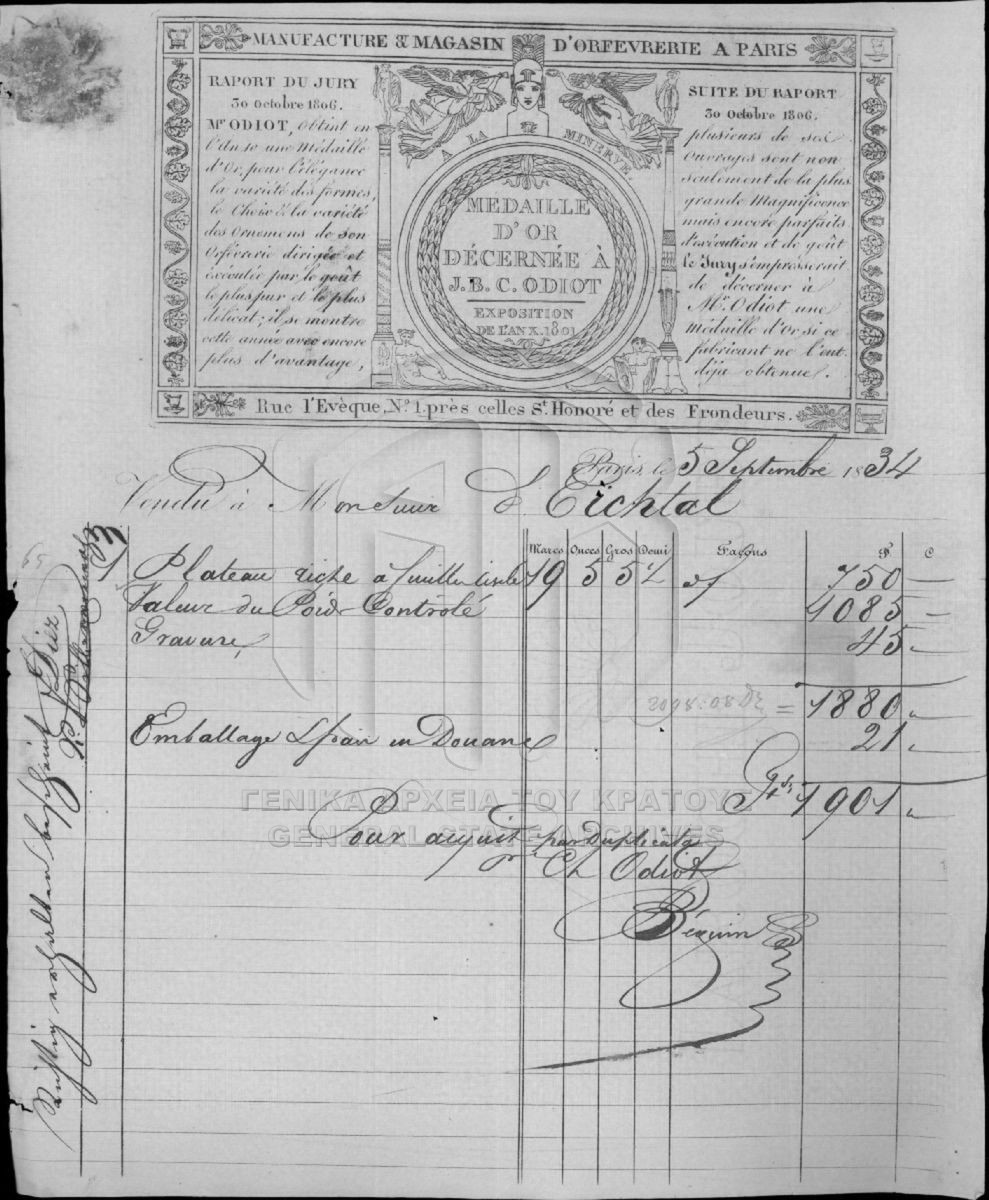 MANUFACTURE & MAGASIN D'ORFEVRERIE A PARIS
RAPORT DU JURY
30 Octobre 1806.
Mr. ODIOT, Obtint en
l'An 10 une Médaille
d'Or, pour l'élégance
la variété des formes,
le Choix & la variété
des Ornemens de son
Orfévrerie dirigée et
éxécutée par le goût
le plus pur et le plus
délicat; il se montre
cette année avec encore
plus d'avantage,
A LA MINERVE.
MEDAILLE
D'OR
DÉCERNÉE À
J.B.C. ODIOT
EXPOSITION
DE L'AN X. 1801
SUITE DU RAPORT
30 Octobre 1806.
plusieurs de ses
Ouvrages sont non
seulement de la plus
grande Magnificence
mais encore parfaits
d'exécution et de goût
le Jury s'empresserait
de décerner à
Mr. Odiot une
Médaille d'Or, si ce
fabricant ne l'eut
déja obtenue.
Rue l'Evèque, No. 1. près celles St. Honoré et des Frondeurs.
Paris, le 5 Septembre 1834
Vendu à Monsieur d'Eichtal
Marcs Onces Gros Demi Façons F C
1 Plateau riche à feuilles 19 5 5 ½ 750 "
Valeur du Poids Controlé 1085 "
Gravure, 45 "
= 1880 "
Emballage & frais en Douane 21 "
1901 "
ΓΕΝΙΚΑ ΑΡΧΕΙΑ ΤΟΥ ΚΡΑΤΟΥΣ
GENERAL STATE ARCHIVES
Pour acquit par Duplicata
pr Ch Odiot
Béquin
Richtig erhalten bescheint